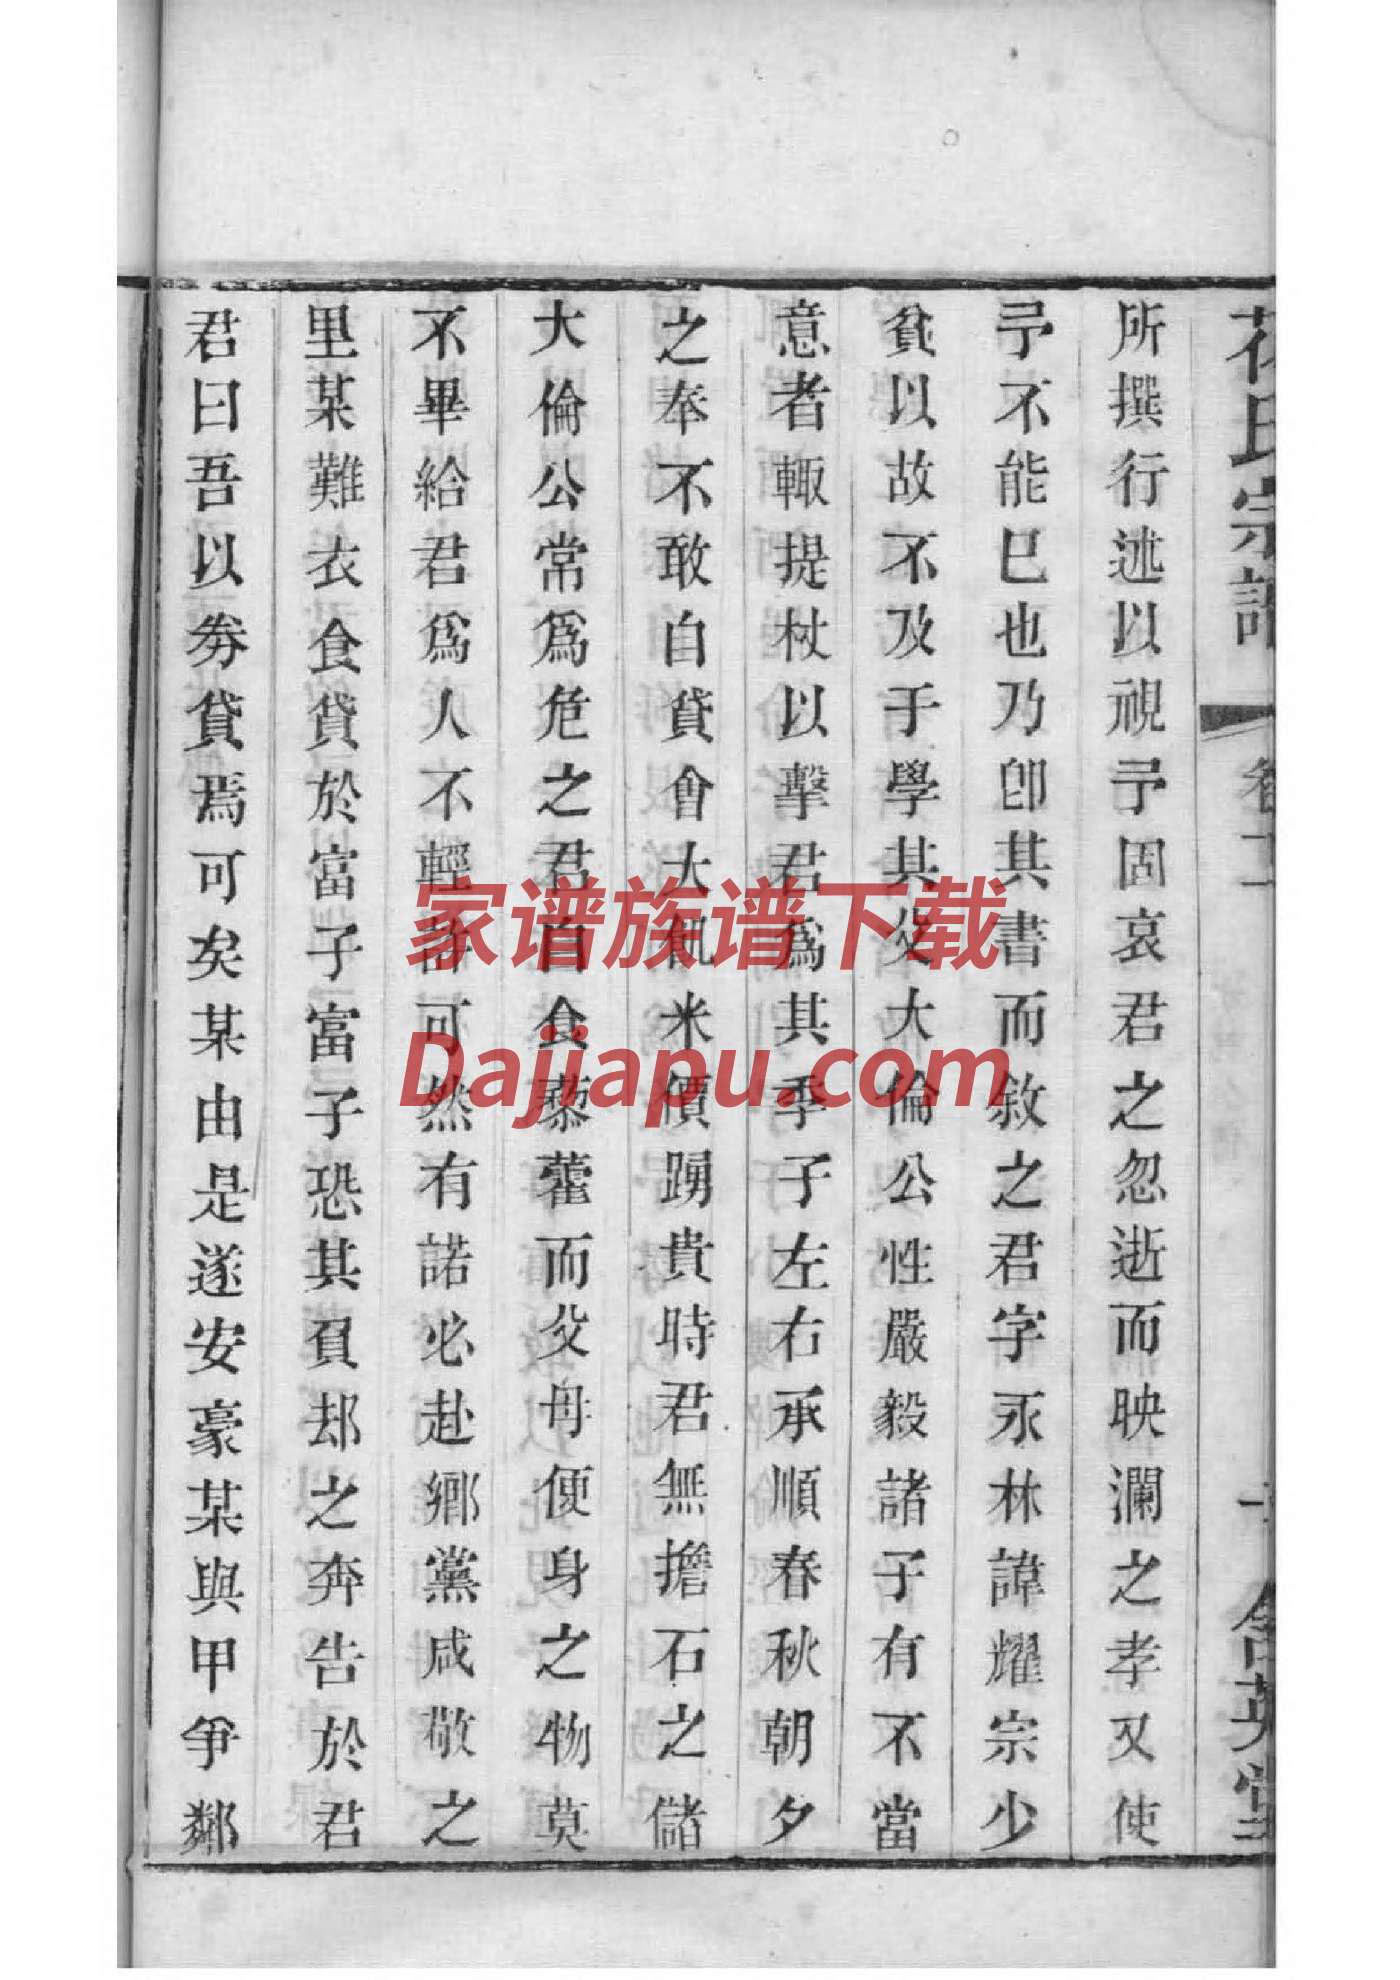 所撰行述以視予固哀君之忽逝而映瀾之孝又使
予不能巳也乃卽其書而敘之君字永林諱耀宗少
貧以故不及于學其父大倫公性嚴毅諸子有不當
意者輙提杖以擊君為其季子左右承順春秋朝夕
之奉不敢自貸會大飢米價踴貴時君無擔石之儲
大倫公常爲危之君自食藜藿而父母便身之物莫
不畢給君爲人不輕許可然有諾必赴鄉黨咸敬之
里某難衣食貸於富子富子恐其負却之奔告於君
君曰吾以劵貸焉可矣某由是遂安豪某與甲爭鄰
花氏宗譜
卷十一
含英堂
家谱族谱下载
Dajiapu.com